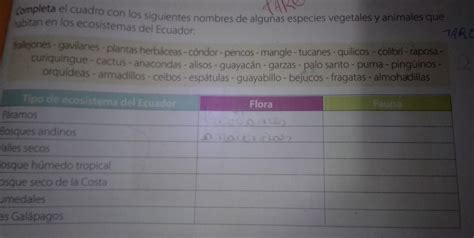 Completa el cuadro con los siguientes nombres de algunas especies vegetales y animales que
habitan en los ecosistemas del Ecuador:
frailejones - gavilanes - plantas herbáceas - cóndor - pencos - mangle - tucanes - quilicos - colibrí - raposa -
curiquingue - cactus - anacondas - alisos - guayacán - garzas - palo santo - puma - pingüinos -
orquídeas - armadillos - ceibos - espátulas - guayabillo - bejucos - fragatas - almohadillas
Tipo de ecosistema del Ecuador Flora Fauna
Páramos
Bosques andinos
Valles secos
osque húmedo tropical
osque seco de la Costa
umedales
as Galápagos